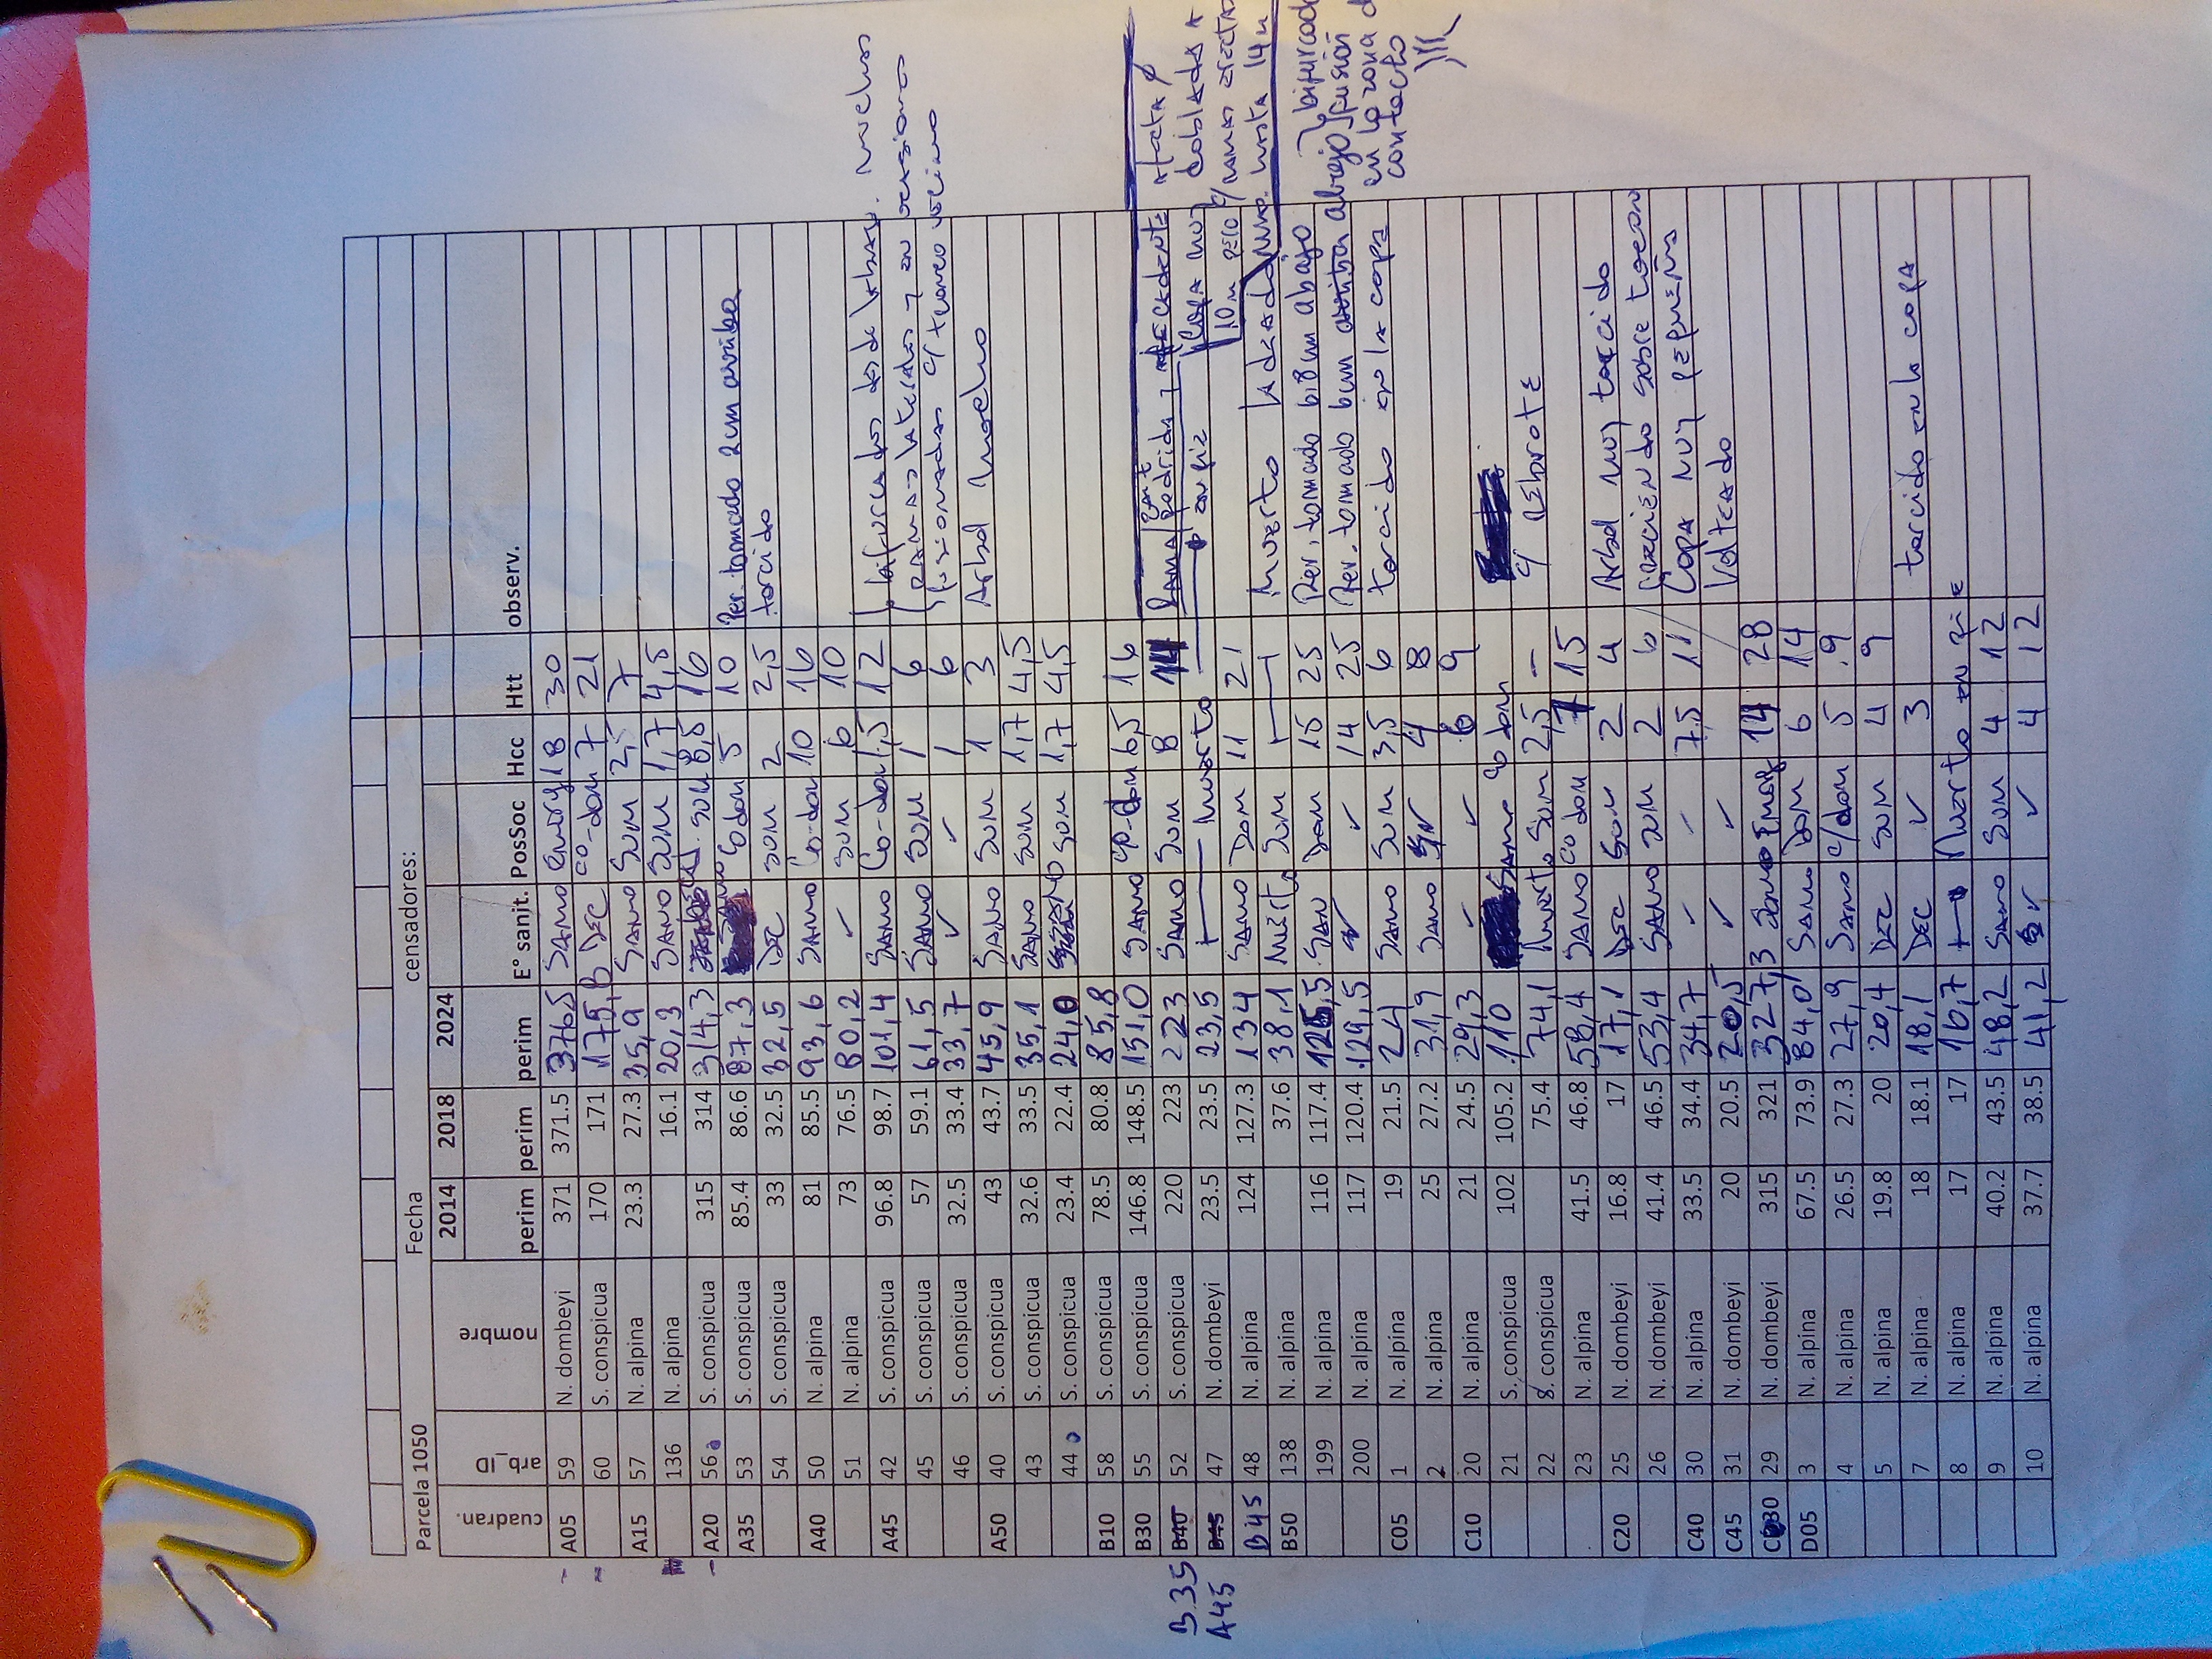 Parcela 1050 Fecha censadores:
2014 2018 2024
cuadran. arb_ID nombre perim perim perim E° sanit. PosSoc Hcc Htt observ.
A05 59 N. dombeyi 371 371.5 376,5 SANO Emerg 18 30
60 S. conspicua 170 171 175,8 DEC co-dom 7 21
A15 57 N. alpina 23.3 27.3 35,9 SANO SUM 2,5 7
136 N. alpina 16.1 20,3 SANO SUM 1,7 4,5
A20 56 S. conspicua 315 314 314,3 SUM 8,5 16
A35 53 S. conspicua 85.4 86.6 87,3 SANO Co dom 5 10 Per. tomado 2cm arriba
54 S. conspicua 33 32.5 32,5 DEC SUM 2 2,5 torcido
A40 50 N. alpina 81 85.5 93,6 SANO Co-dom 10 16
51 N. alpina 73 76.5 80,2 ✓ SUM 6 10
A45 42 S. conspicua 96.8 98.7 101,4 SANO Co-dom 1,5 12 bifurcados desde la base. muchas
45 S. conspicua 57 59.1 61,5 SANO SUM 1 6 ramas laterales y en ocasiones
46 S. conspicua 32.5 33.4 33,7 ✓ ✓ 1 6 fusionadas c/ tronco vecino
A50 40 S. conspicua 43 43.7 45,9 SANO SUM 1 3 Arbol mocho
43 S. conspicua 32.6 33.5 35,1 SANO SUM 1,7 4,5
44 S. conspicua 23.4 22.4 24,0 SANO SUM 1,7 4,5
B10 58 S. conspicua 78.5 80.8 85,8
B30 55 S. conspicua 146.8 148.5 151,0 SANO co-dom 6,5 16
B35 B40 52 S. conspicua 220 223 223 SANO SUM 8 14 RAMA podrida y decadente afecta
A45 B45 47 N. dombeyi 23.5 23.5 23,5 Muerto en pie Copa muy doblada a
B45 48 N. alpina 124 127.3 134 SANO DOM 11 21 10m pero c/ ramas erectas
B50 138 N. alpina 37.6 38,1 Muerto SUM Muerto ladeado hasta 14m
199 N. alpina 116 117.4 126,5 SAN DOM 15 25 Per. tomado 6,8cm abajo bifurcado
200 N. alpina 117 120.4 129,5 ✓ ✓ 14 25 Per. tomado 6cm arriba abajo fusión
C05 1 N. alpina 19 21.5 24 SANO SUM 3,5 6 torcido en la copa en la zona d
2 N. alpina 25 27.2 31,9 SANO ✓ 4 8 contacto
C10 20 N. alpina 21 24.5 29,3 ✓ ✓ 6 9
21 S. conspicua 102 105.2 110 SANO co dom
22 S. conspicua 75.4 74,1 Muerto SUM 2,5 — c/ REBROTE
23 N. alpina 41.5 46.8 58,4 SANO co dom 7 15
C20 25 N. dombeyi 16.8 17 17,1 DEC SUM 2 4 Arbol muy torcido
26 N. dombeyi 41.4 46.5 53,4 SANO SUM 2 6 creciendo sobre tocon
C40 30 N. alpina 33.5 34.4 34,7 ✓ ✓ 7,5 11 Copa muy pequeña
C45 31 N. dombeyi 20 20.5 20,5 ✓ ✓ Volteado
C30 29 N. dombeyi 315 321 327,3 Sano Emerg 14 28
D05 3 N. alpina 67.5 73.9 84,0 SANO DOM 6 14
4 N. alpina 26.5 27.3 27,9 SANO c/dom 5 9
5 N. alpina 19.8 20 20,4 DEC SUM 4 9
7 N. alpina 18 18.1 18,1 DEC ✓ 3 torcido en la copa
8 N. alpina 17 17 16,7 Muerto en pie
9 N. alpina 40.2 43.5 48,2 SANO SUM 4 12
10 N. alpina 37.7 38.5 41,2 ✓ ✓ 4 12